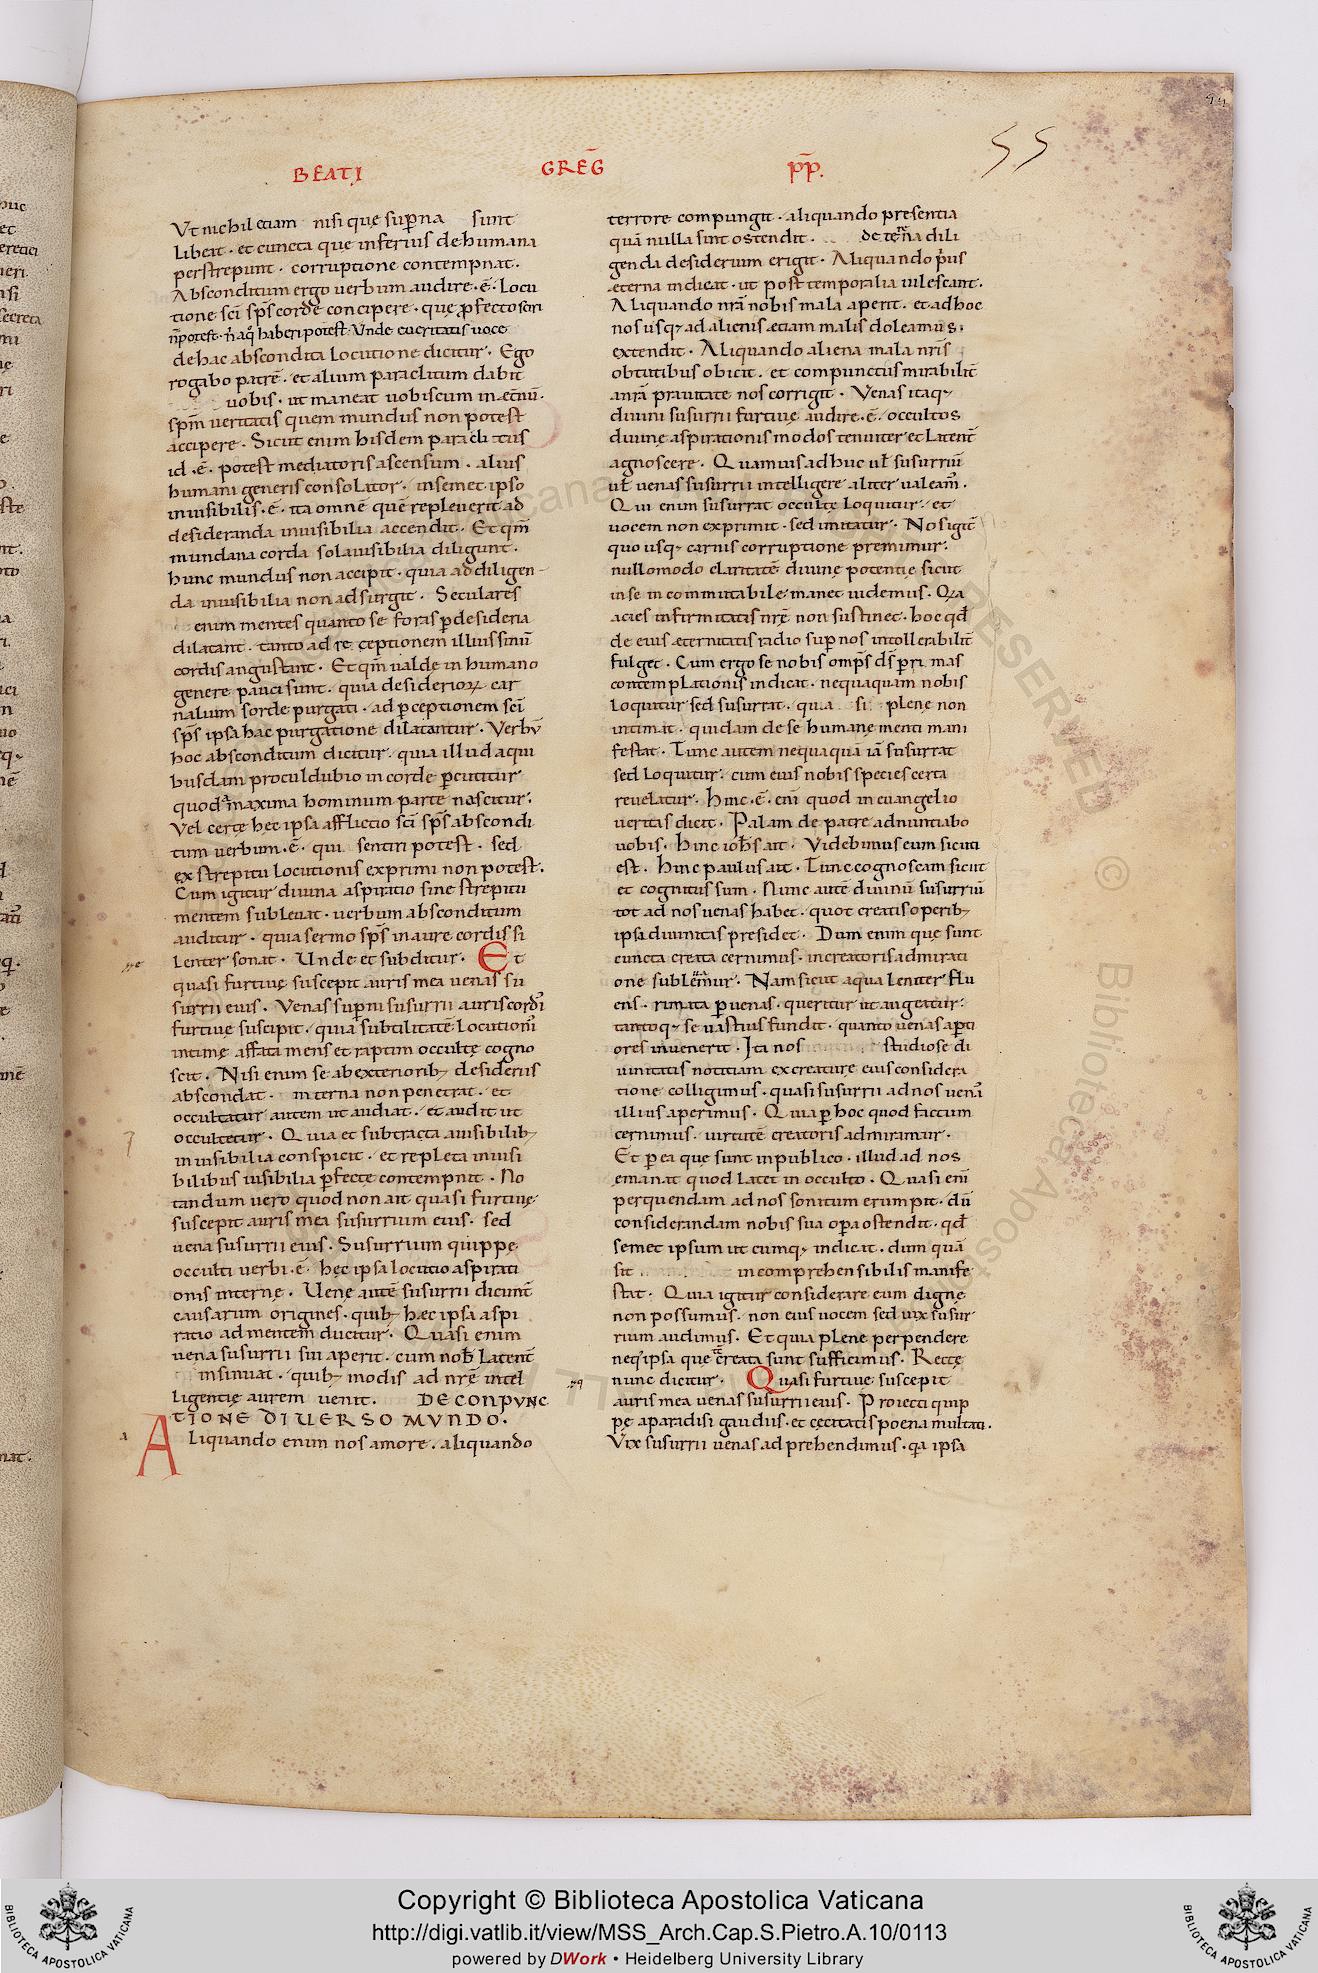 BEATI GREḠ p̄p̄.
55
Vt nichil etiam nisi quę sup̱na sunt
libeat · et cuncta que inferius de humana
perstrepunt · corruptione contempnat ·
Absconditum ergo verbum audire · ē · locu
tione sc̄i sp̄s corde concipere · quę ꝓfecto sciri
n̄ potest · n̄ aq̊ haberi potest · Vnde eueritatis uoce
de hac abscondita locutione dicitur · Ego
rogabo patrē · et alium paraclitum dabit
uobis · ut maneat uobiscum in æt̄nū ·
sp̄m veritatis quem mundus non potest
accipere · Sicut enim hisdem paraclitus
id · ē · potest mediatoris ascensum · alius
humani generis consolator · in semet ipso
inuisibilis · ē · ita omnē quē repleuerit ad
desideranda inuisibilia accendit · Et qm̄
mundana corda sola uisibilia diligunt ·
hunc mundus non accipit · quia ad diligen-
da inuisibilia non adsurgit · Seculares
enim mentes quanto se foras p̱ desideria
dilatant · tanto ad receptionem illius sinū
cordis angustant · Et qm̄ ualde in humano
genere pauci sunt · quia desiderioꝝ car
nalium sorde purgati · ad p̱ceptionem sc̄i
sp̄s ipsa hac purgatione dilatantur · Verbū
hoc absconditum dicitur · quia illud a qui
busdam proculdubio in corde p̱cutitur
quod a maxima hominum parte nascitur ·
Vel certe hec ipsa afflictio sc̄i sp̄s abscondi
tum verbum · ē · qui sentiri potest · sed
ex strepitu locutionis exprimi non potest ·
Cum igitur diuina aspiratio sine strepitu
mentem subleuat · uerbum absconditum
auditur · quia sermo sp̄s in aure cordis si
lenter sonat · Unde et subditur · Et
quasi furtiuę suscepit auris mea venas su
surrii eius · Venas sup̱ni susurrii auris cordis
furtiuę suscipit · quia subtilitatē locutionis
intimę affata mens et raptim occultę cogno
scit · Nisi enim se ab exteriorib; desideriis
abscondat · interna non penetrat · et
occultatur autem ut audiat · et audit ut
occultetur · Quia et subtracta a uisibilib;
inuisibilia conspicit · et repleta inuisi
bilibus uisibilia p̱fecte contempnit · No
tandum uero quod non ait quasi furtiuę
suscepit auris mea susurrium eius · sed
uena susurrii eius · Susurrium quippe
occulti verbi · ē · hec ipsa locutio aspirati
onis internę · Uenę autē susurrii dicunt̄
causarum origines · quib; hec ipsa aspi
ratio ad mentem ducitur · Quasi enim
uena susurrii sui aperit · cum nob̄ latent̄
insinuat · quib; modis ad nr̄ę intel
ligentię aurem uenit · DE CONPVNC
TIONE DIVERSO MVNDO.
a Aliquando enim nos amore · aliquando
terrore compungit · aliquando presentia
quā nulla sint ostendit · de ætern̄a dili
genda desiderium erigit · Aliquando p̄us
æterna indicat · ut post temporalia uilescant ·
Aliquando nr̄a nobis mala aperit · et ad hoc
nos usq; ad alienis ætiam malis doleamus ·
extendit · Aliquando aliena mala nr̄is
obtutibus obicit · et compunctus mirabilit̄
a nr̄a prauitate nos corrigit · Venas itaq;
diuini susurrii furtiuę audire · ē · occultos
diuinę aspirationis modos tenuiter et latent̄
agnoscere · Quamuis adhuc uł susurriū
uł venas susurrii intelligere aliter ualeam̄ ·
Qui enim susurrat occultę loquitur · et
uocem non exprimit · sed imitatur · Nos igit̄
quo usq; carnis corruptione premimur ·
nullomodo claritatē diuinę potentię sicut
in se incommutabile manet uidemus · Qia
acies infirmitatis nr̄ę non sustinet · hoc qd̄
de eius æternitatis radio sup̱ nos intollerabilit̄
fulget · Cum ergo se nobis omp̄s d̄s p̱ rimas
contemplationis indicat · nequaquam nobis
loquitur sed susurrat · quia si plene non
intimat · quidam de se humanę menti mani
festat · Tunc autem nequaquā iā susurrat
sed loquitur · cum eius nobis species certa
reuelatur · hinc · ē · eni quod in euangelio
ueritas dicit · Palam de patre adnuntiabo
uobis · hinc ioh̄s ait · Videbimus eum sicuti
est · hinc paulus ait · Tunc cognoscam sicut
et cognitus sum · Nunc autē diuinū susurriū
tot ad nos uenas habet · quot creatis operib;
ipsa diuinitas presidet · Dum enim que sunt
cuncta creata cernimus · in creatoris admirati
one subleuamur · Nam sicut aqua leniter flu
ens · rimata p̱ uenas · queritur ut augeatur ·
tantoq; se uastius fundit · quanto uenas ap̱ti
ores inuenerit · Ita nos studiose di
uinitatis notitiam ex creaturę eius considera
tione colligimus · quasi susurrii ad nos uenā
illius aperimus · Quia p̱ hoc quod factum
cernimus · uirtutē creatoris admiramur ·
Et p̱ ea que sunt in publico · illud ad nos
emanat quod latet in occulto · Quasi enī
per quendam ad nos sonitum erumpit · dū
considerandam nobis sua op̱a ostendit · qd̄
semet ipsum utcumq; indicat · dum quā
sit incomprehensibilis manife
stat · Quia igitur considerare eum digne
non possumus · non eius uocem sed uix susur
rium audimus · Et quia plene perpendere
neq' ipsa que creata sunt sufficimus · Rectę
nunc dicitur · Quasi furtiue suscepit
auris mea uenas susurrii eius · Proiecti quip
pe a paradisi gaudiis · et cecitatis poena multati ·
Vix susurrii uenas adprehendimus · qa ipsa
Copyright © Biblioteca Apostolica Vaticana
http://digi.vatlib.it/view/MSS_Arch.Cap.S.Pietro.A.10/0113
powered by DWork • Heidelberg University Library